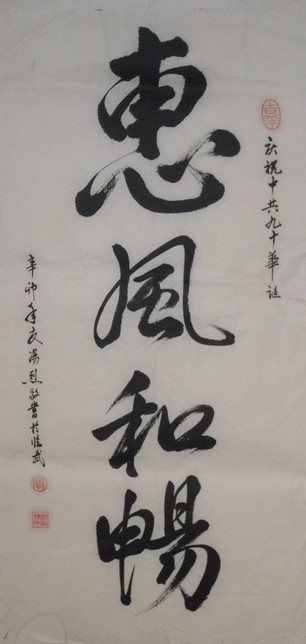 惠風和暢
庆祝中共九十華诞
辛卯年夏湯烈敬書於臨武